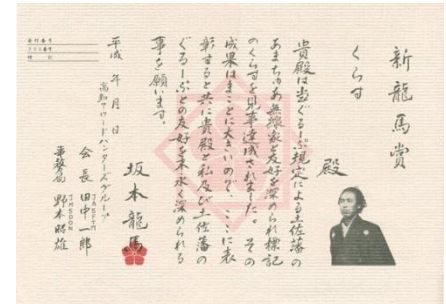 新龍馬賞
くらす
殿
貴殿は当ぐるーぷ規定による土佐藩の
あまちゅあ無線家と友好を深められ標記
のくらすを見事達成されました。その
成果はまことに大きいので、ここに表
彰すると共に貴殿と私及び土佐藩の
ぐるーぷとの友好を末永く深められる
事を願います。
坂本龍馬
平成 年 月 日
高知アワードハンターズグループ
会長 田中一郎
事務局 野本昭雄
発行番号
クラス番号
特記